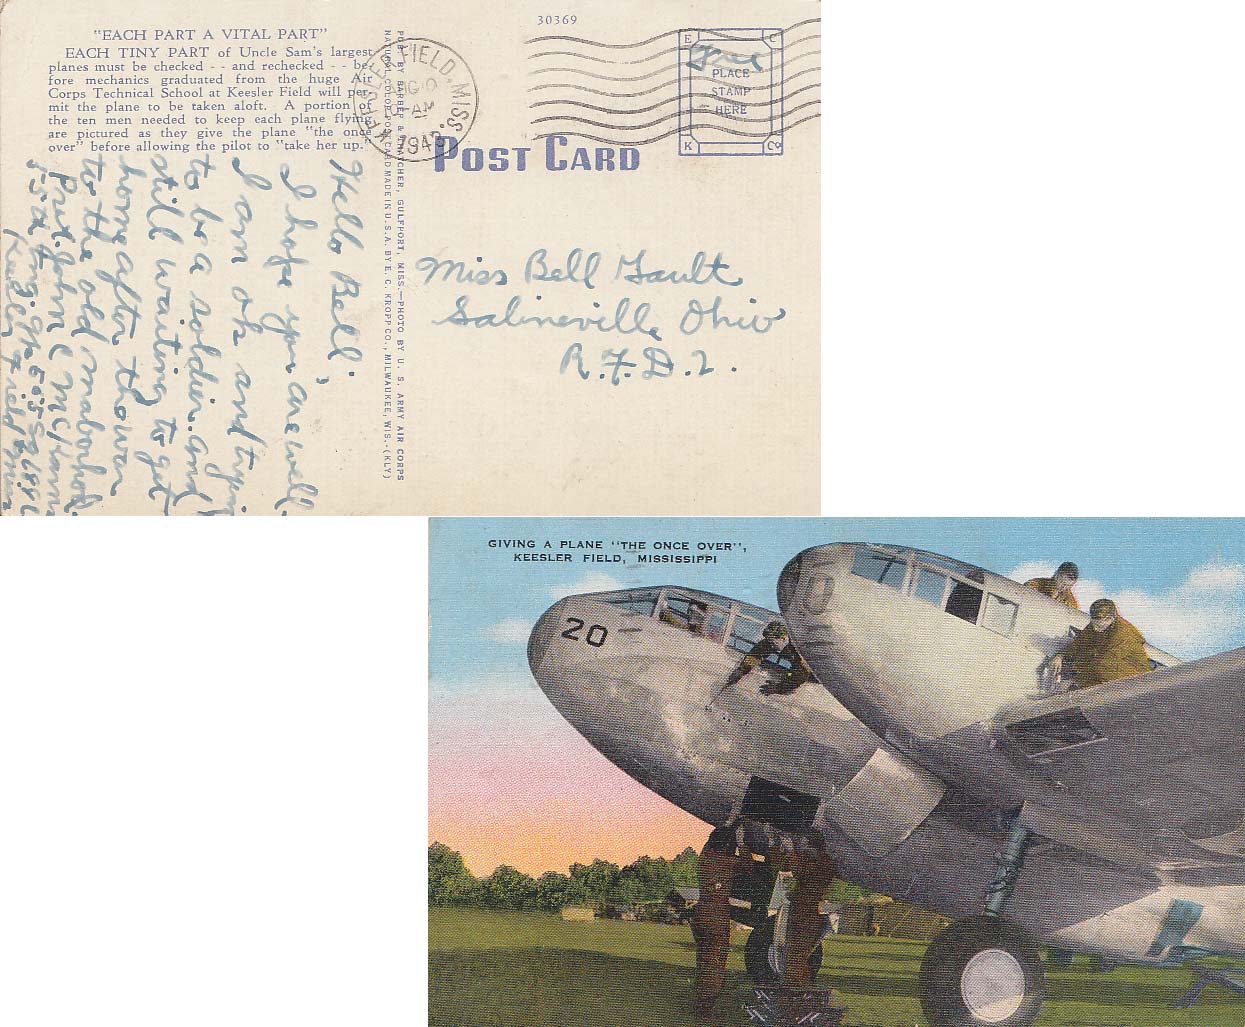 30369
"EACH PART A VITAL PART"
EACH TINY PART of Uncle Sam's largest
planes must be checked - - and rechecked - - be-
fore mechanics graduated from the huge Air
Corps Technical School at Keesler Field will per-
mit the plane to be taken aloft. A portion of
the ten men needed to keep each plane flying
are pictured as they give the plane "the once
over" before allowing the pilot to "take her up."
KEESLER FIELD, MISS.
AM
194
Free
E C
PLACE
STAMP
HERE
K Co
POST CARD
PUB. BY BARBER & THATCHER, GULFPORT, MISS.—PHOTO BY U. S. ARMY AIR CORPS
NATURAL COLOR POST CARD MADE IN U. S. A. BY E. C. KROPP CO., MILWAUKEE, WIS.-(KLY)
Hello Bell;
I hope you are well
I am ok and trying
to be a soldier. and
still waiting to get
home after the war
to the old
Pvt. John C
Keesler Field Miss
Miss Bell Gault
Salineville, Ohio
R.F.D. 2.
GIVING A PLANE "THE ONCE OVER",
KEESLER FIELD, MISSISSIPPI
20